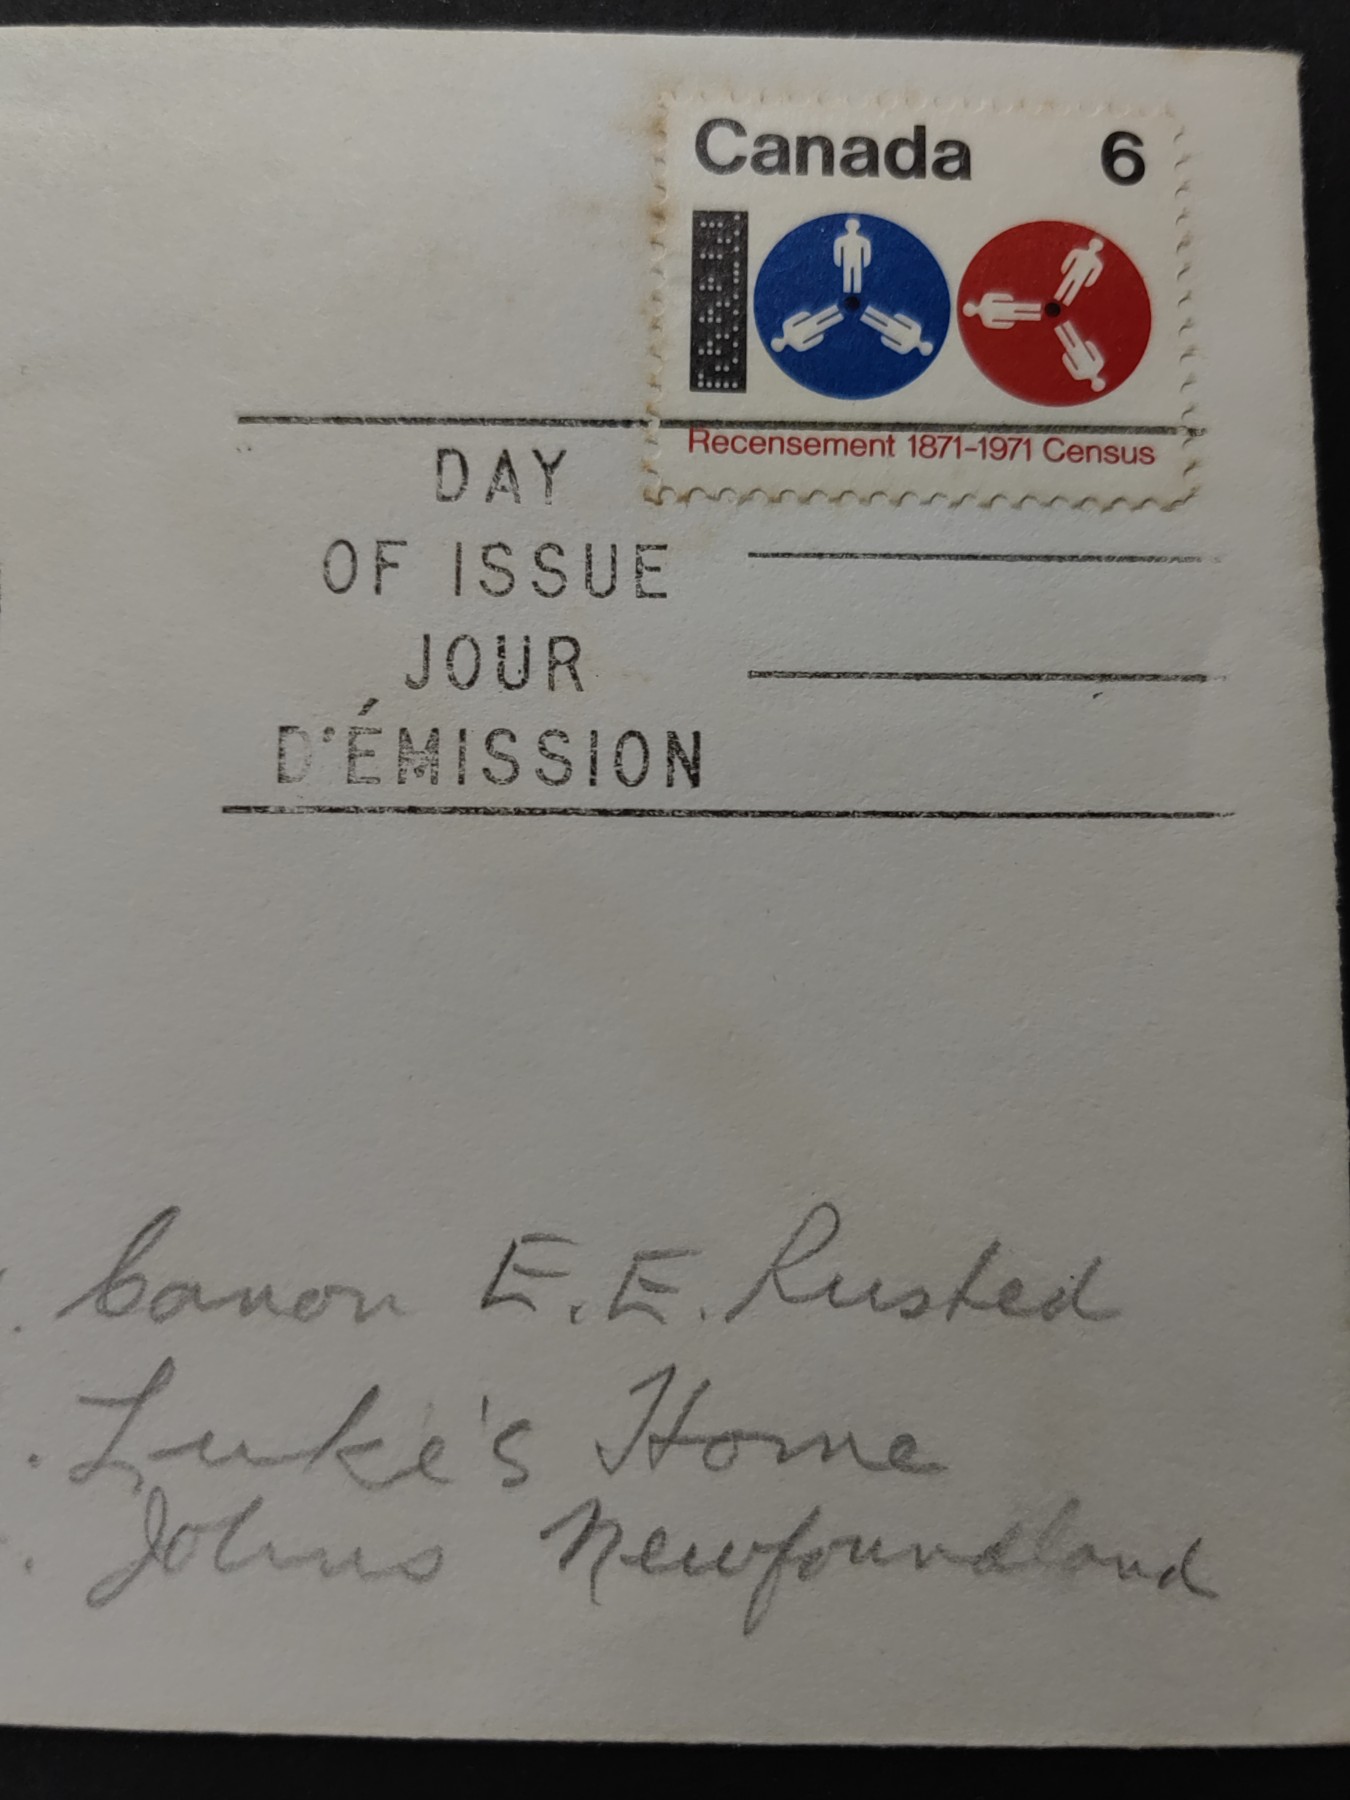 Canada 6
Recensement 1871-1971 Census
DAY
OF ISSUE
JOUR
D'ÉMISSION
. Canon E. E. Rusted
. Luke's Home
. Johns Newfoundland